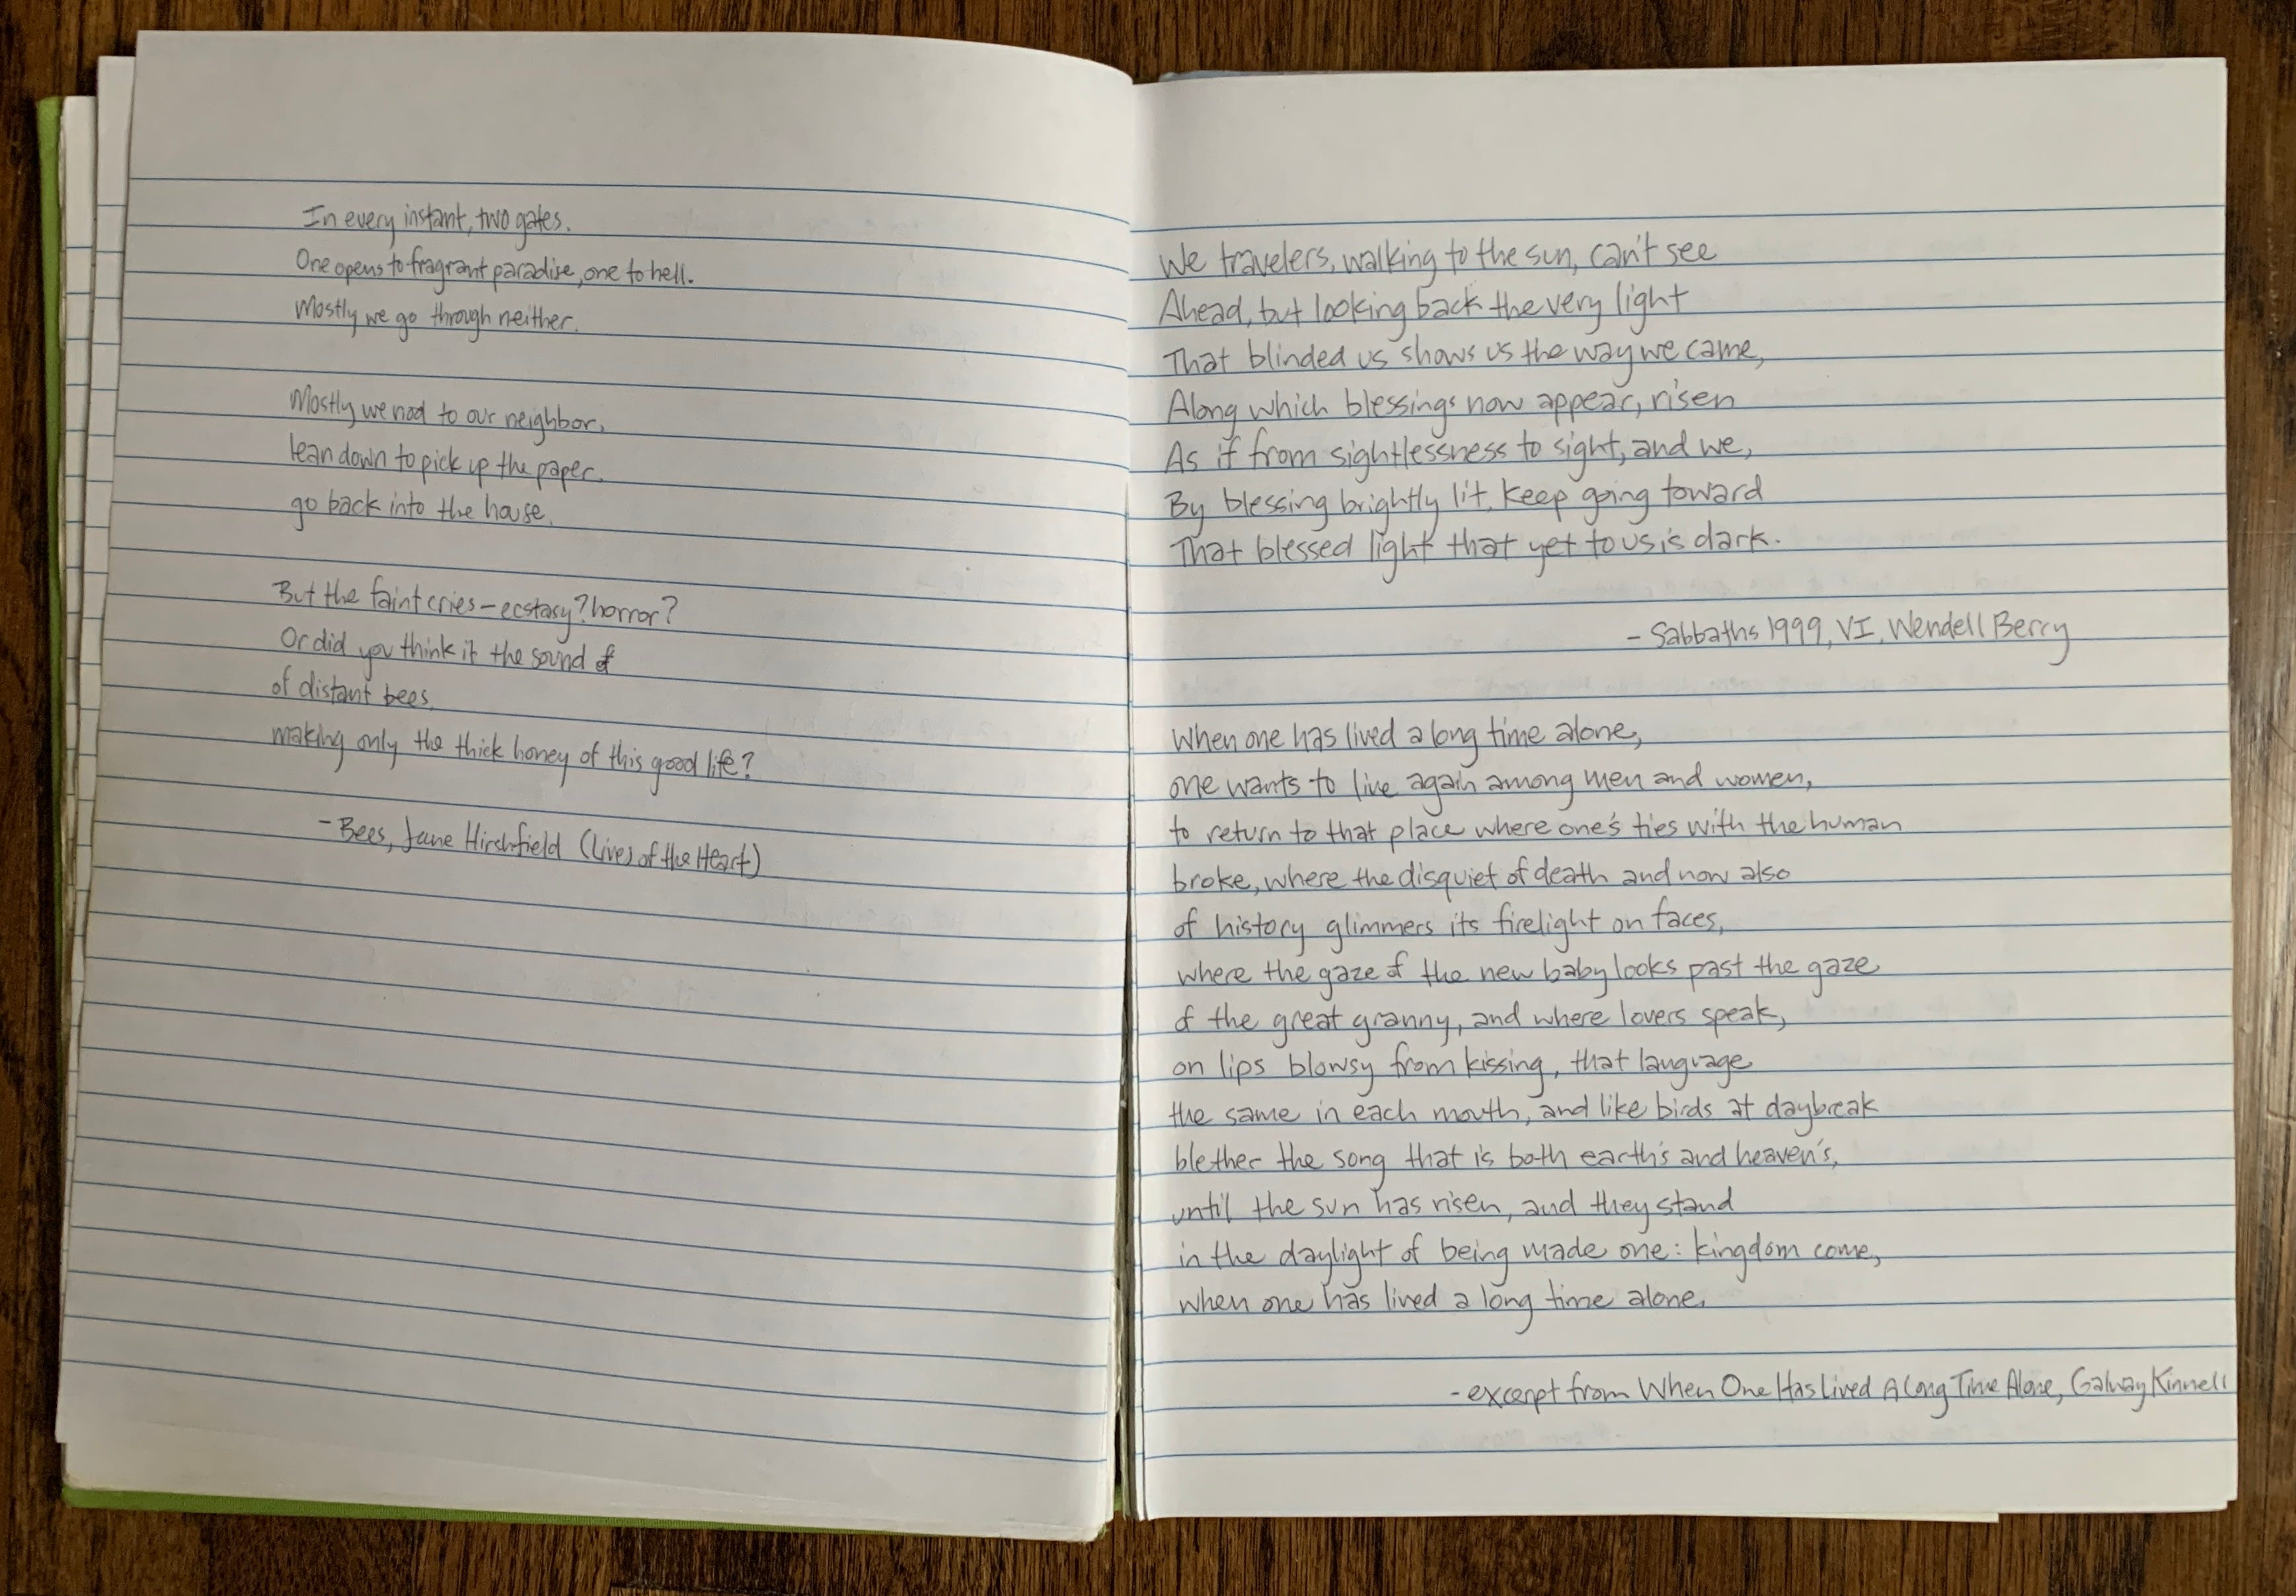 In every instant, two gates.
One opens to fragrant paradise, one to hell.
Mostly we go through neither.
Mostly we nod to our neighbor,
lean down to pick up the paper,
go back into the house.
But the faint cries – ecstasy? horror?
Or did you think it the sound of
of distant bees,
making only the thick honey of this good life?
- Bees, Jane Hirshfield (Lives of the Heart)
We travelers, walking to the sun, can't see
Ahead, but looking back the very light
That blinded us shows us the way we came,
Along which blessings now appear, risen
As if from sightlessness to sight, and we,
By blessing brightly lit, keep going toward
That blessed light that yet to us is dark.
- Sabbaths 1999, VI, Wendell Berry
When one has lived a long time alone,
one wants to live again among men and women,
to return to that place where one's ties with the human
broke, where the disquiet of death and now also
of history glimmers its firelight on faces,
where the gaze of the new baby looks past the gaze
of the great granny, and where lovers speak,
on lips blowsy from kissing, that language
the same in each mouth, and like birds at daybreak
blether the song that is both earth's and heaven's,
until the sun has risen, and they stand
in the daylight of being made one: kingdom come,
when one has lived a long time alone.
- excerpt from When One Has Lived A Long Time Alone, Galway Kinnell